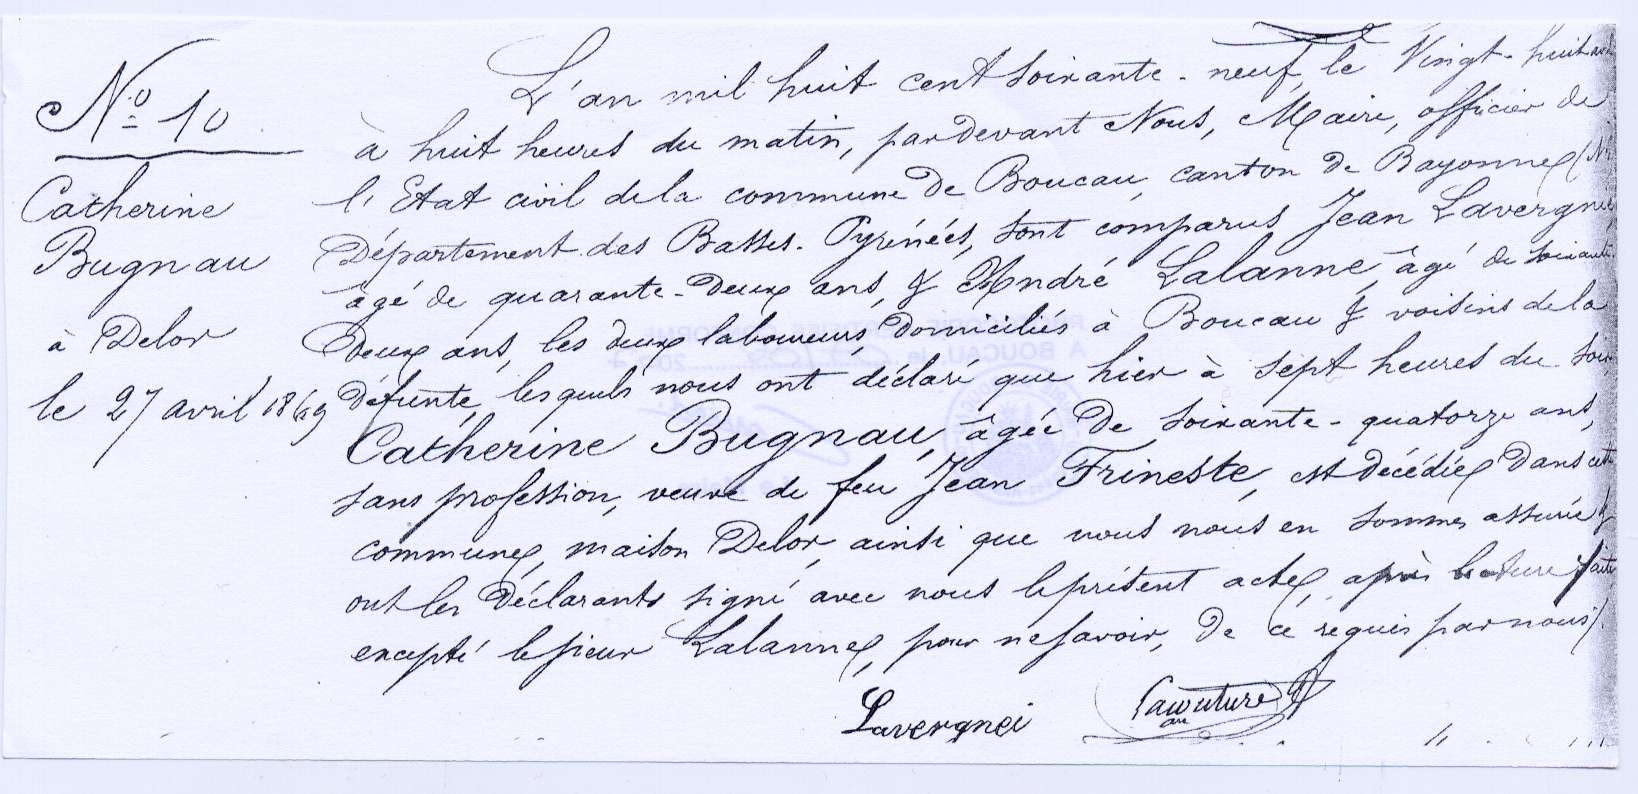 N.o 10
Catherine
Bugnau
à Delor
le 27 avril 1869
L'an mil huit cent soixante-neuf, le vingt-huit
à huit heures du matin, pardevant Nous, Maire, officier de
l'Etat civil de la commune de Boucau, canton de Bayonne
Département des Basses-Pyrénées, sont comparus Jean Lavergne,
âgé de quarante-deux ans, & André Lalanne, âgé de soixante
deux ans, les deux laboureurs, domiciliés à Boucau & voisins de la
défunte, lesquels nous ont déclaré que hier à sept heures du soir
Catherine Bugnau, âgée de soixante-quatorze ans,
sans profession, veuve de feu Jean Frineste, est décédée dans cette
commune, maison Delor, ainsi que nous nous en sommes assuré &
ont les déclarants signé avec nous le présent acte, après lecture faite
excepté le sieur Lalanne, pour ne savoir, de ce requis par nous
Lavergnei